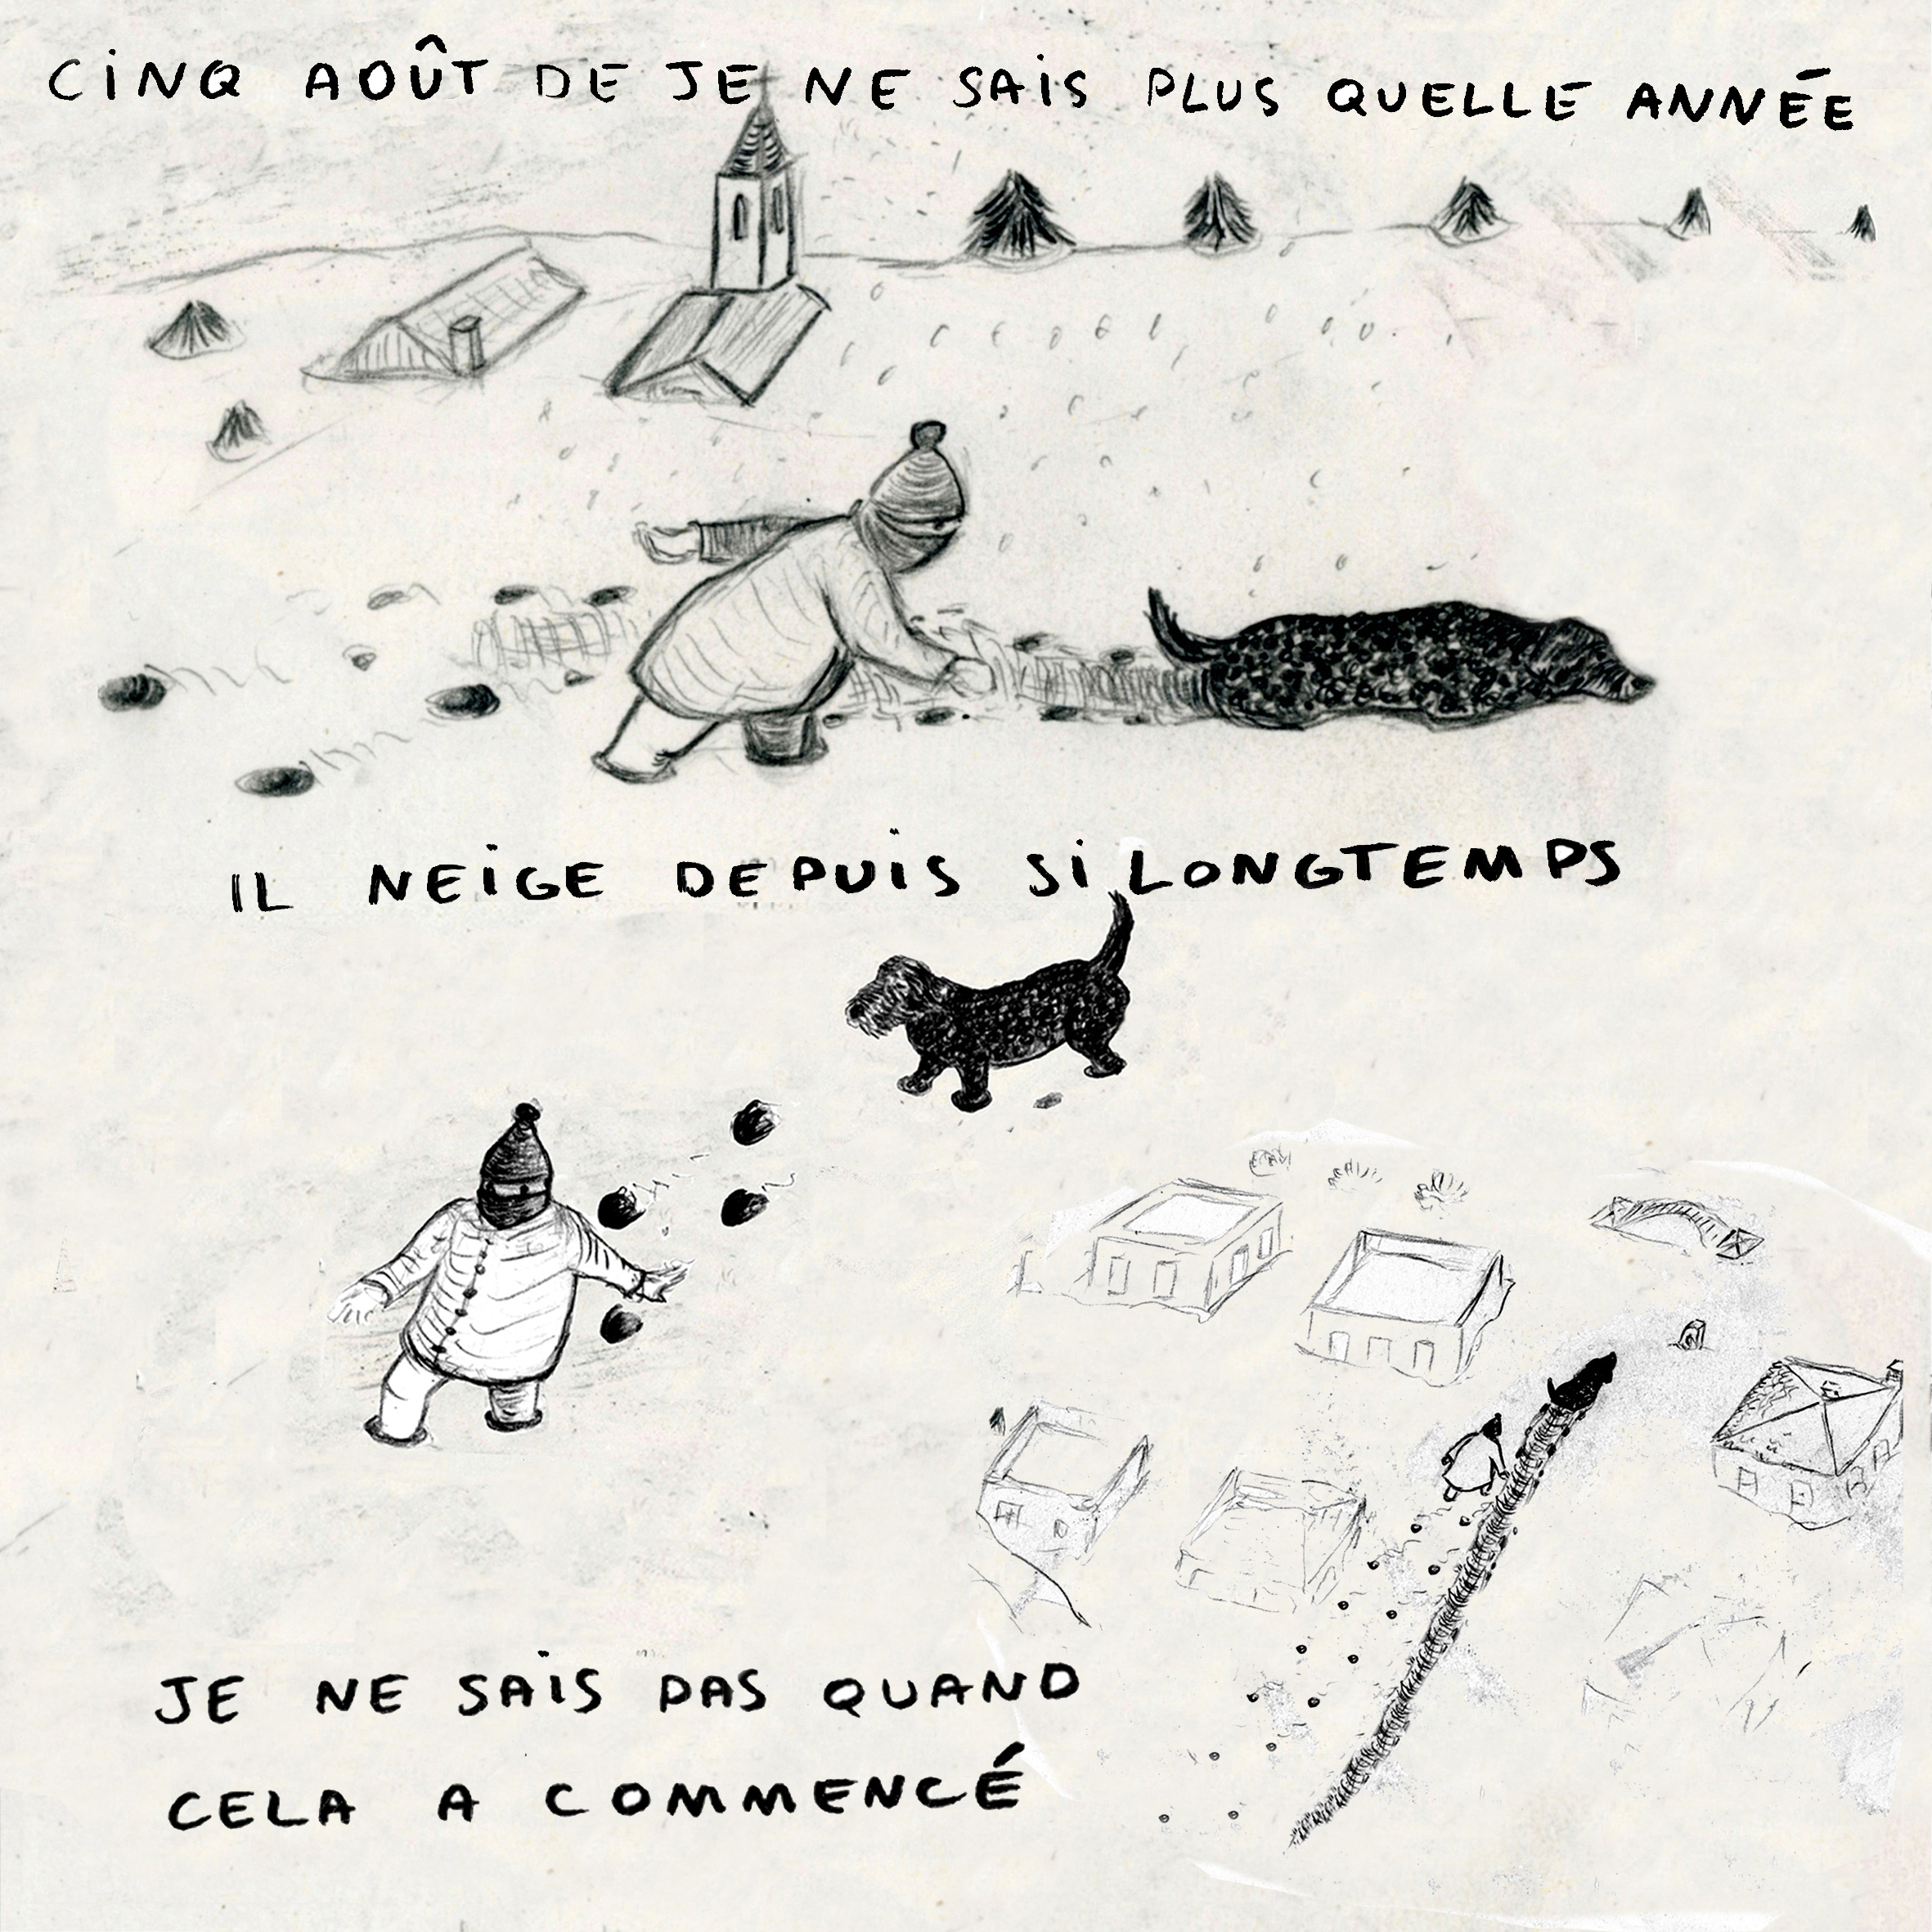 CINQ AOÛT DE JE NE SAIS PLUS QUELLE ANNÉE
IL NEIGE DEPUIS SI LONGTEMPS
JE NE SAIS PAS QUAND
CELA A COMMENCÉ